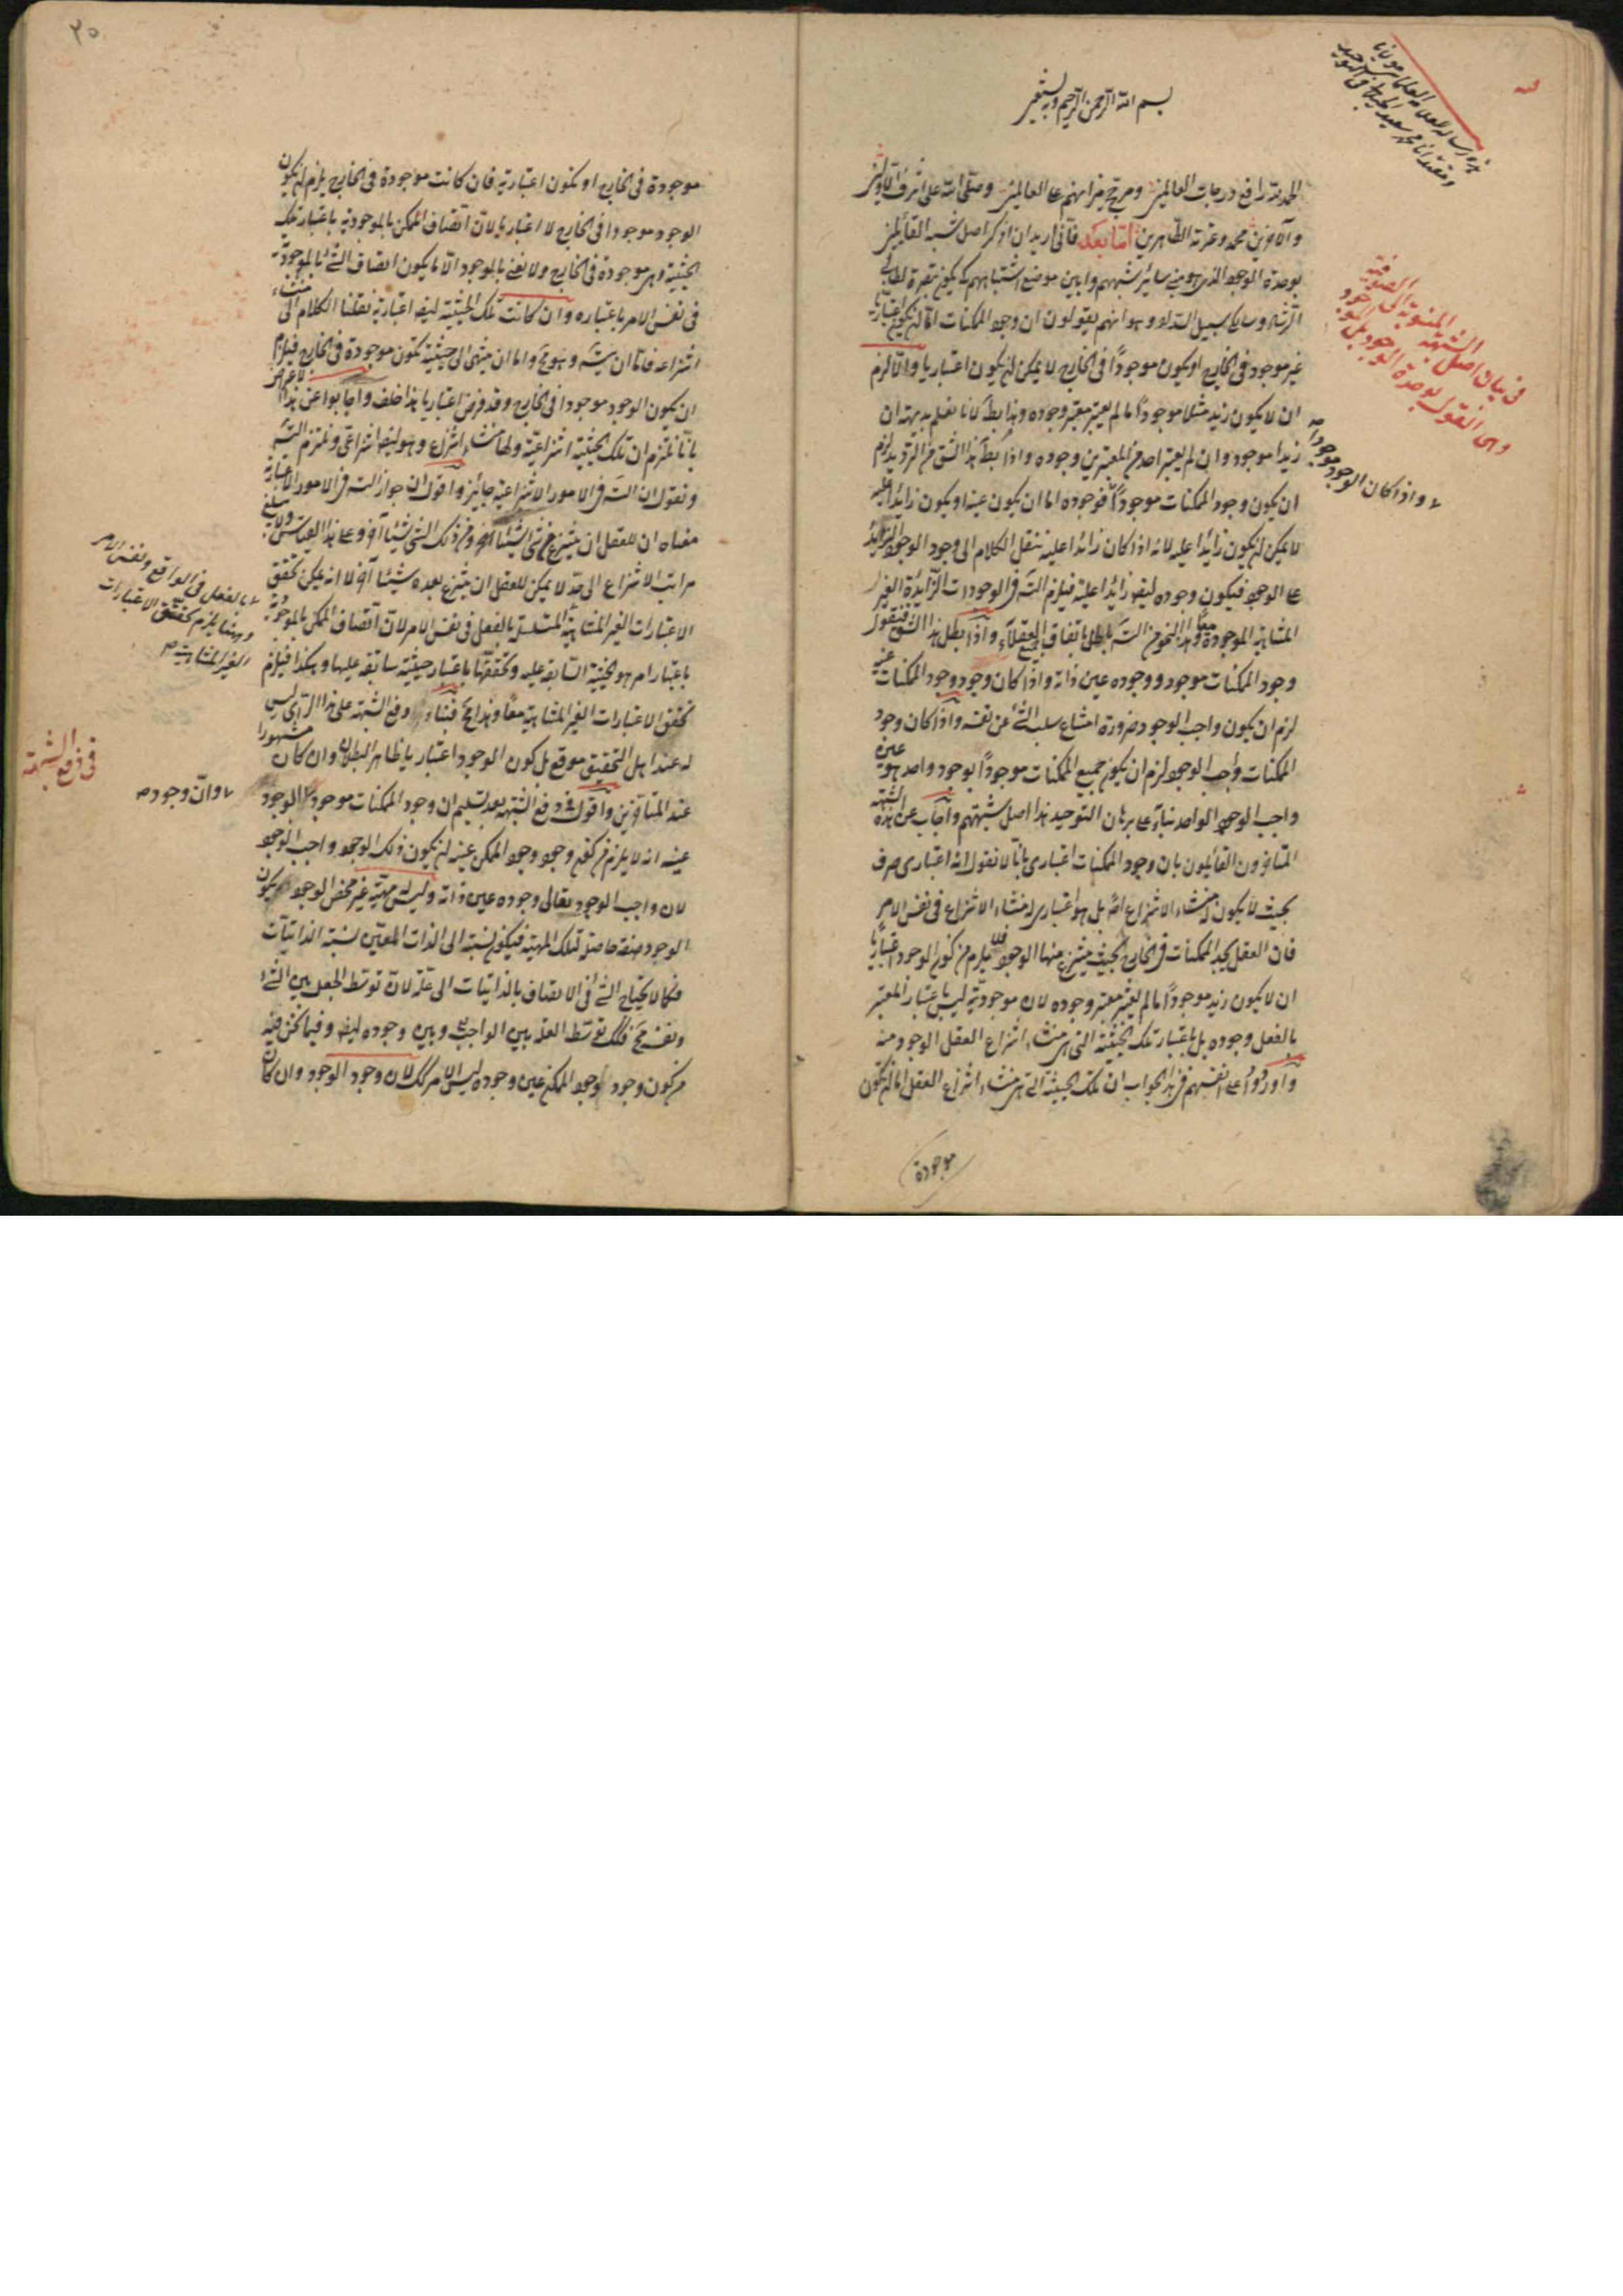 بسم الله الرحمن الرحيم وبه نستعين
الحمد لله رافع درجات العالمين ومرجح ميزانهم على العالمين وصلى الله على اشرف الاولين
والآخرين محمد وعترته الطاهرين اما بعد فانى اريد ان اذكر اصل شبه القائلين
بوحدة الوجود الذى هو مبنى ساير شبههم وابين موضع اشتباههم كى يكون تبصرة لطالبى
الرشد وسالكى سبيل السداد وهو انهم يقولون ان وجود الممكنات اما ان يكون اعتباريا
غير موجود فى الخارج او يكون موجودًا فى الخارج لا يمكن ان يكون اعتباريا والا لزم
ان لا يكون زيد مثلا موجودًا ما لم يعتبر معتبر وجوده وهذا بط لانا نعلم بديهة ان
زيدا موجود وان لم يعتبر احد من المعتبرين وجوده واذا بطل هذا الشق من الترديد لزم
ان يكون وجود الممكنات موجودًا فوجوده اما ان يكون عينه او يكون زائدا عليه
لا يمكن ان يكون زائدا عليه لانه اذا كان زائدا عليه ننقل الكلام الى وجود الوجود الزائد
على الوجود فيكون وجوده ايضا زائدا عليه فيلزم التس فى الوجودات الزائدة الغير
المتناهية الموجودة معًا وهذا النحو من التس باطل باتفاق جميع العقلاء واذا بطل هذا الشق فنقول
وجود الممكنات موجود ووجوده عين ذاته واذا كان وجود وجود الممكنات عينه
لزم ان يكون واجب الوجود ضرورة امتناع سلب الشئ عن نفسه واذا كان وجود
الممكنات واجب الوجود لزم ان يكون جميع الممكنات موجودًا بوجود واحد هو عين
واجب الوجود الواحد بناء على برهان التوحيد هذا اصل شبهتهم واجاب عن هذه الشبهة
المتأخرون القائلون بان وجود الممكنات اعتبارى بانا لا نقول انه اعتبارى صرف
بحيث لا يكون له منشاء الانتزاع اصلا بل هو اعتبارى له منشاء الانتزاع فى نفس الامر
فان العقل يجد الممكنات فى الخارج بحيث ينتزع منها الوجود فلا يلزم من كون الوجود اعتباريا
ان لا يكون زيد موجودًا ما لم يعتبر معتبر وجوده لان موجوديته ليس باعتبار المعتبر
بالفعل وجوده بل باعتبار تلك الحيثية التى هى منشاء انتزاع العقل الوجود منه
واوردوا على انفسهم فى هذا الجواب ان تلك الحيثية التى هى منشاء انتزاع العقل اما ان يكون
موجودة
فى بيان اصل الشبهة المنسوبة الى الصوفية
وهى القول بوحدة الوجود بل الموجود
واذا كان الوجود موجودا
٢٥
موجودة فى الخارج او يكون اعتبارية فان كانت موجودة فى الخارج يلزم ان يكون
الوجود موجودا فى الخارج لا اعتباريا لان اتصاف الممكن بالموجودية باعتبار تلك
الحيثية وهى موجودة فى الخارج ولا نعنى بالموجود الا ما يكون اتصاف الشئ بالموجودية
فى نفس الامر باعتباره وان كانت تلك الحيثية ايضا اعتبارية نقلنا الكلام الى منشاء
انتزاعه فاما ان يتس وهو مح واما ان ينتهى الى حيثية تكون موجودة فى الخارج فيلزم
ان يكون الوجود موجودا فى الخارج وقد فرض اعتباريا هذا خلف واجابوا عن هذا
بانا نلتزم ان تلك الحيثية انتزاعية ولها منشاء انتزاع وهو ايضا انتزاعى ونلتزم التس
ونقول ان التس فى الامور الانتزاعية جائز واقول ان جواز التس فى الامور الاعتبارية
معناه ان للعقل ان ينتزع من شئ شيئا آخر ومن ذلك الشئ شيئا آخر وعلى هذا القياس ولا يبلغ
مراتب الانتزاع الى حد لا يمكن للعقل ان ينتزع بعده شيئا آخر لا انه يمكن تحقق
الاعتبارات الغير المتناهية المتسلسل بالفعل فى نفس الامر لان اتصاف الممكن بالموجودية
باعتبار امر هو الحيثية السابقة عليه وتحققها باعتبار حيثية سابقة عليها وهكذا فيلزم
تحقق الاعتبارات الغير المتناهية معًا وهذا مح فبناء دفع الشبهة على هذا الراى ليس
له عند اهل التحقيق موقع بل كون الوجود اعتباريا ظاهر البطلان وان كان مشهورا
عند المتأخرين واقول فى دفع الشبهة بعد تسليم ان وجود الممكنات موجود الوجود
عينه انه لا يلزم من كون وجود وجود الممكن عينه ان يكون ذلك الوجود واجب الوجود
لان واجب الوجود تعالى وجوده عين ذاته وليس له مهية غير محض الوجود يكون
الوجود صفة حاصلة لتلك المهية فيكون نسبته الى الذات المعين نسبة الذاتيات
فكما لا يحتاج الشئ فى الاتصاف بالذاتيات الى علة لان توسط الجعل بين الشئ
ونفسه مح فكذلك توسط العلة بين الواجب وبين وجوده ايضا وفيما نحن فيه
من كون وجود وجود الممكن عين وجوده ليس الامر كذلك لان وجود الوجود وان كان
بالفعل فى الواقع ونفس الامر
وههنا يلزم تحقق الاعتبارات
الغير المتناهية
فى دفع الشبهة
وان وجوده